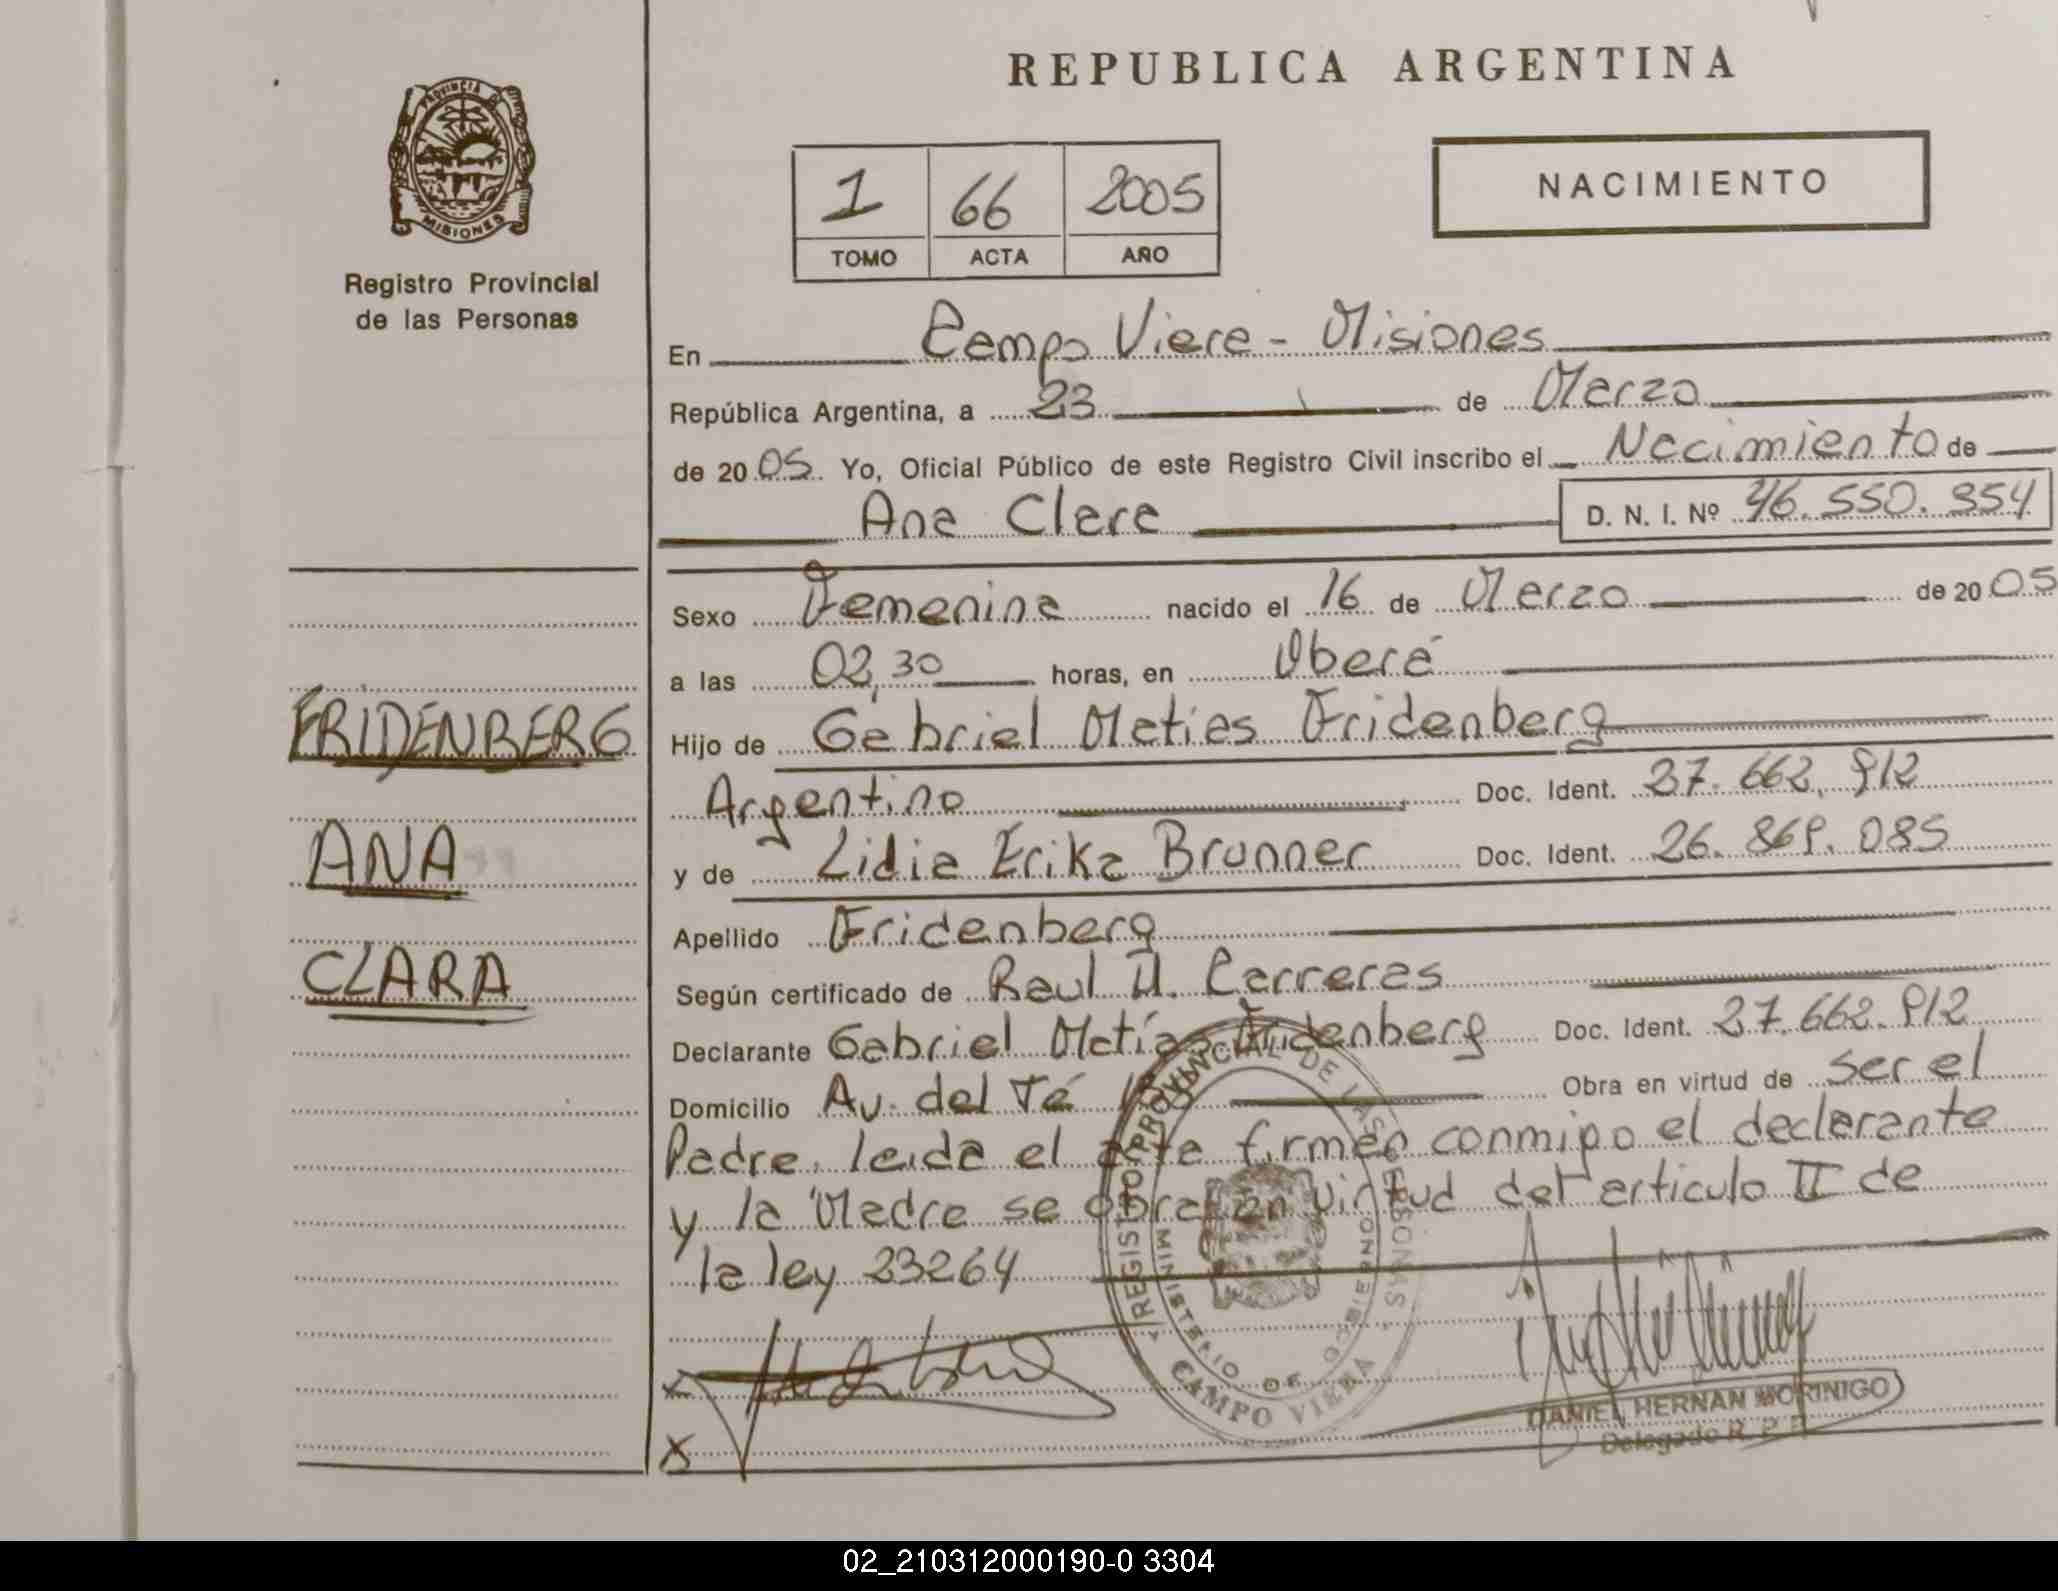 REPUBLICA ARGENTINA
PROVINCIA DE
MISIONES
Registro Provincial
de las Personas
1 66 2005
TOMO ACTA AÑO
NACIMIENTO
En Campo Viera - Misiones
República Argentina, a 23 de Marzo
de 2005. Yo, Oficial Público de este Registro Civil inscribo el Nacimiento de
Ana Clara D. N. I. Nº 46.550.954
Sexo Femenina nacido el 16 de Marzo de 2005
a las 02,30 horas, en Oberá
FRIDENBERG
ANA
CLARA
Hijo de Gabriel Matias Fridenberg
Argentino Doc. Ident. 27.662.912
y de Lidia Erika Brunner Doc. Ident. 26.869.085
Apellido Fridenberg
Según certificado de Raul H. Carreras
Declarante Gabriel Matías Fridenberg Doc. Ident. 27.662.912
Domicilio Av. del Té Obra en virtud de ser el
Padre. leida el acta firman conmigo el declarante
y la Madre se obra en virtud del articulo II de
la ley 23264
REGISTRO PROVINCIAL DE LAS PERSONAS
MINISTERIO DE GOBIERNO
CAMPO VIERA
X
X
DANIEL HERNAN MORINIGO
Delegado R. P. P.
02_210312000190-0 3304